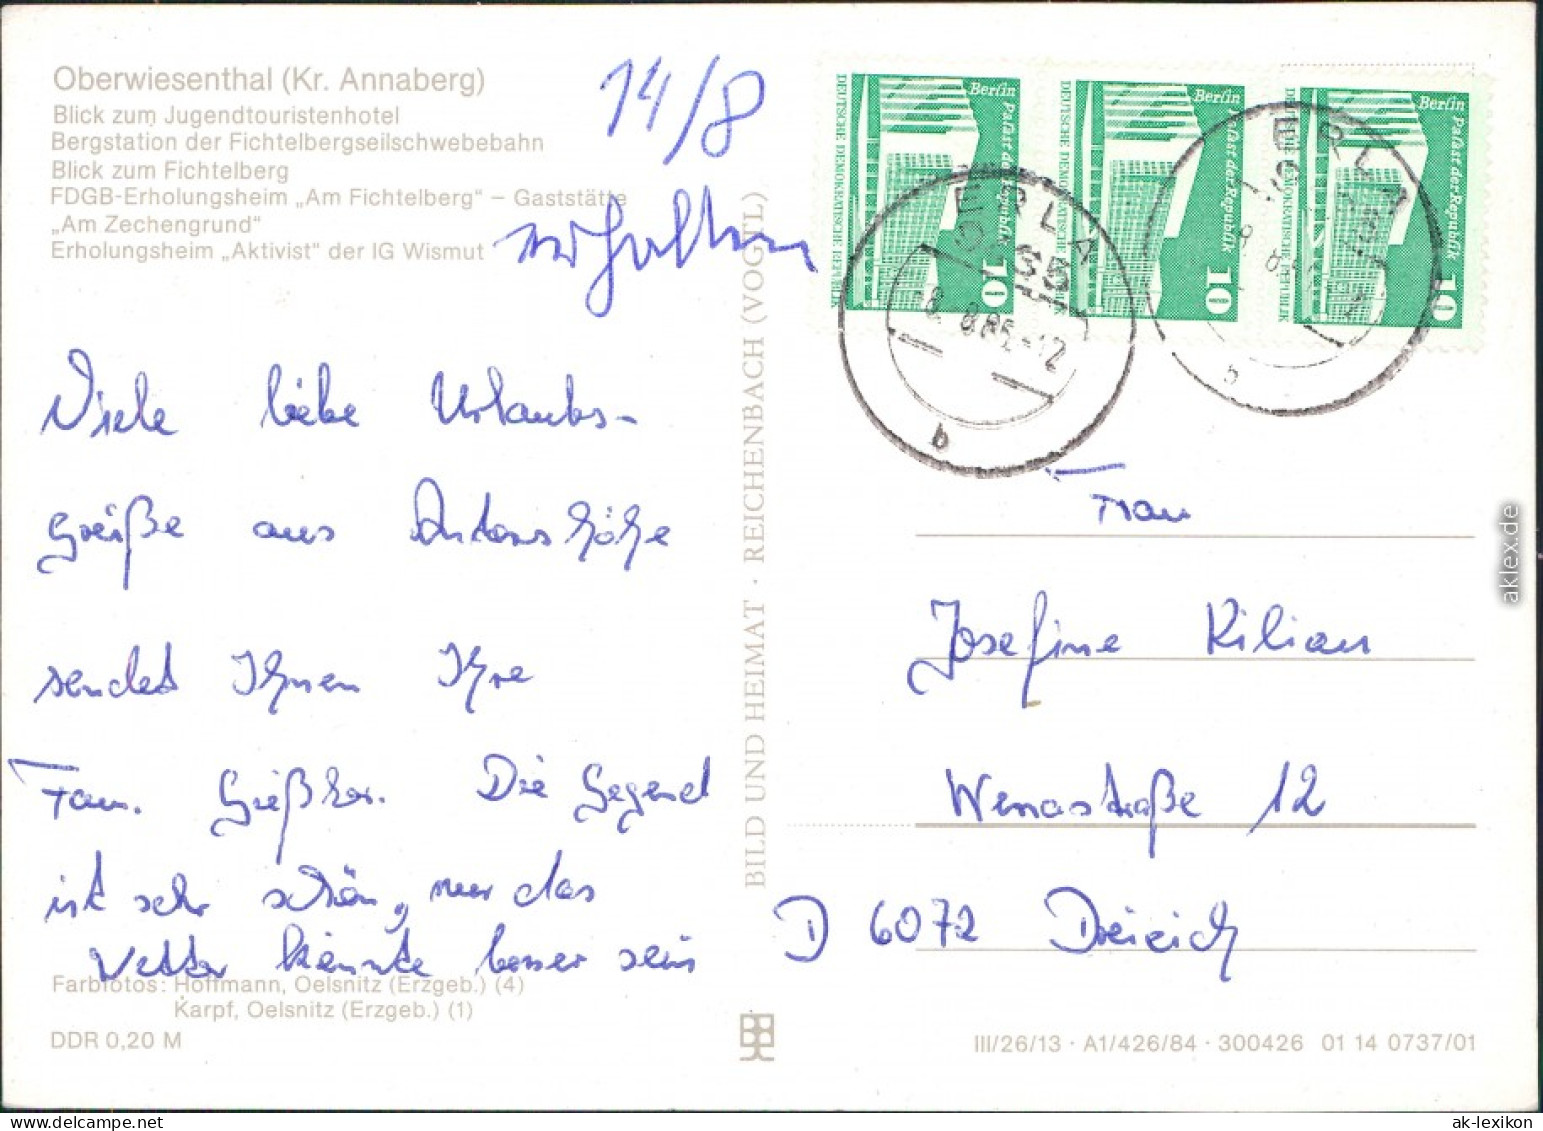 Oberwiesenthal (Kr. Annaberg)
Blick zum Jugendtouristenhotel
Bergstation der Fichtelbergseilschwebebahn
Blick zum Fichtelberg
FDGB-Erholungsheim „Am Fichtelberg“ – Gaststätte
„Am Zechengrund“
Erholungsheim „Aktivist“ der IG Wismut
14/8
erhalten
Viele liebe Urlaubs-
grüße aus Antonshöhe
sendet Ihnen Ihre
Fam. Die Gegend
ist sehr schön, nur das
Wetter könnte besser sein
Farbfotos: Hoffmann, Oelsnitz (Erzgeb.) (4)
Karpf, Oelsnitz (Erzgeb.) (1)
DDR 0,20 M
BILD UND HEIMAT · REICHENBACH (VOGTL)
Berlin Palast der Republik
DEUTSCHE DEMOKRATISCHE REPUBLIK
10
Berlin Palast der Republik
10
Berlin Palast der Republik
10
ERLA
-8. 8.85-12
b
ERLA
Frau
Josefine Kilian
12
D 6072 Dreieich
III/26/13 · A1/426/84 · 300426 01 14 0737/01
aklex.de
ak-lexikon